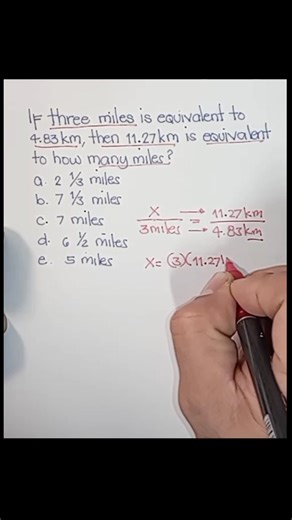 IF three miles is equivalent to
4.83km, then 11.27km is equivalent
to how many miles?
a. 2 1/3 miles
b. 7 1/3 miles
c. 7 miles
d. 6 1/2 miles
e. 5 miles
X → 11.27km
3miles = → 4.83km
X= (3)(11.27k